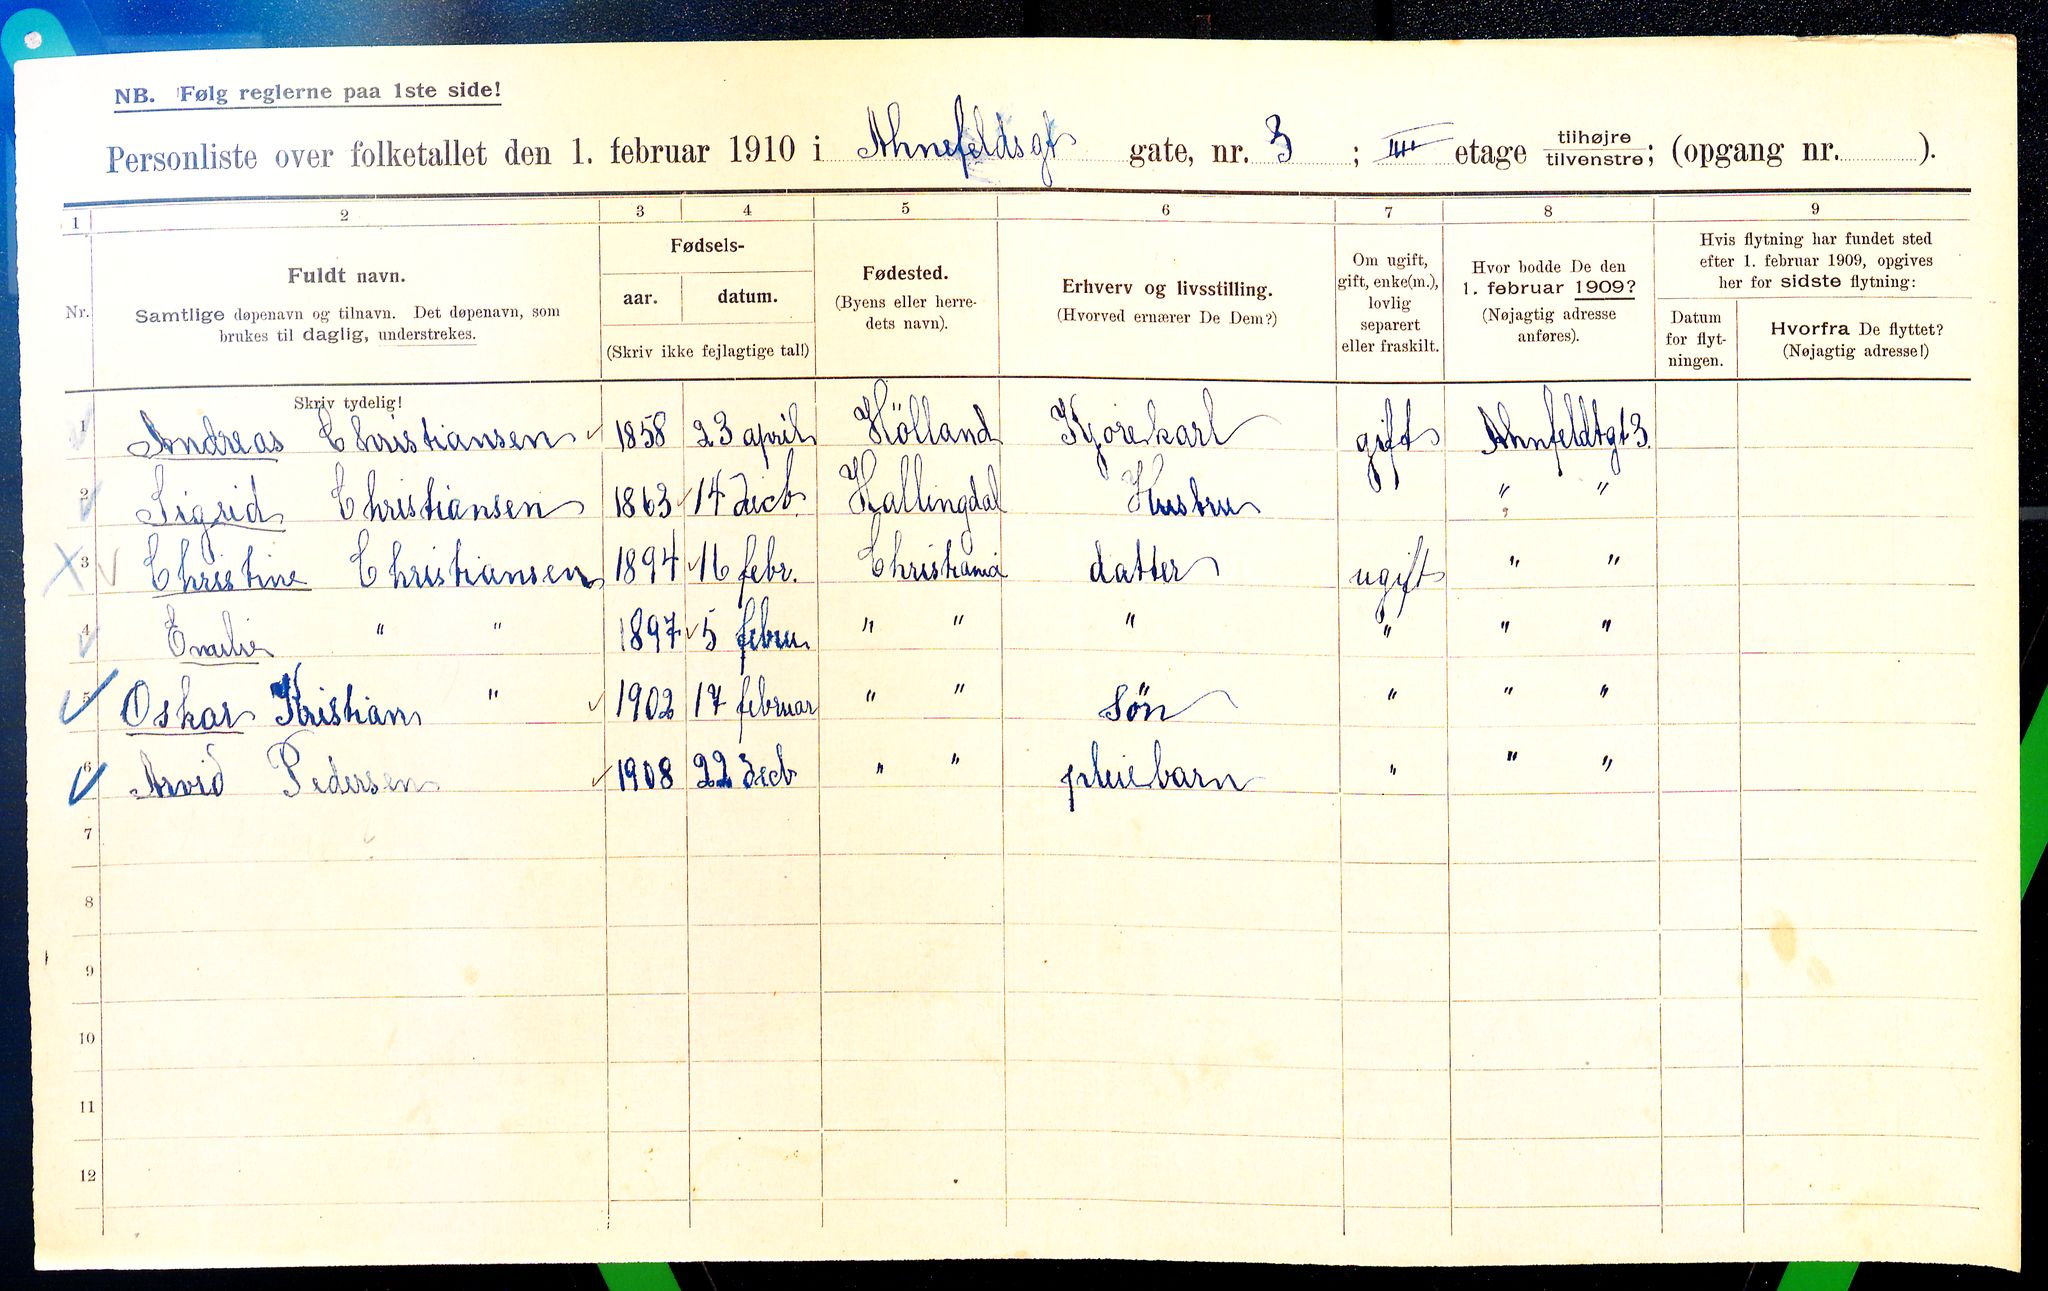 NB. Følg reglerne paa 1ste side!
Personliste over folketallet den 1. februar 1910 i Ahnefeldsgt gate, nr. 3 ; IIII etage tilhøjre tilvenstre; (opgang nr. ).
1 2 3 4 5 6 7 8 9
Nr.
Fuldt navn.
Samtlige døpenavn og tilnavn. Det døpenavn, som
brukes til daglig, understrekes.
Skriv tydelig!
Fødsels-
aar. datum.
(Skriv ikke fejlagtige tal!)
Fødested.
(Byens eller herre-
dets navn).
Erhverv og livsstilling.
(Hvorved ernærer De Dem?)
Om ugift,
gift, enke(m.),
lovlig
separert
eller fraskilt.
Hvor bodde De den
1. februar 1909?
(Nøjagtig adresse
anføres).
Hvis flytning har fundet sted
efter 1. februar 1909, opgives
her for sidste flytning:
Datum
for flyt-
ningen.
Hvorfra De flyttet?
(Nøjagtig adresse!)
1 Andreas Christiansen 1858 23 april Hölland Kjørekarl gift Ahnfeldtgt 3.
2 Sigrid Christiansen 1863 14 decb. Hallingdal Hustru " "
3 Christine Christiansen 1894 16 febr. Christiania datter ugift " "
4 Emilie " " 1897 5 febru " " " " " "
5 Oskar Kristian " 1902 17 februar " " Sön " " "
6 Arvid Pedersen 1908 22 decb " " pleiebarn " " "
7
8
9
10
11
12